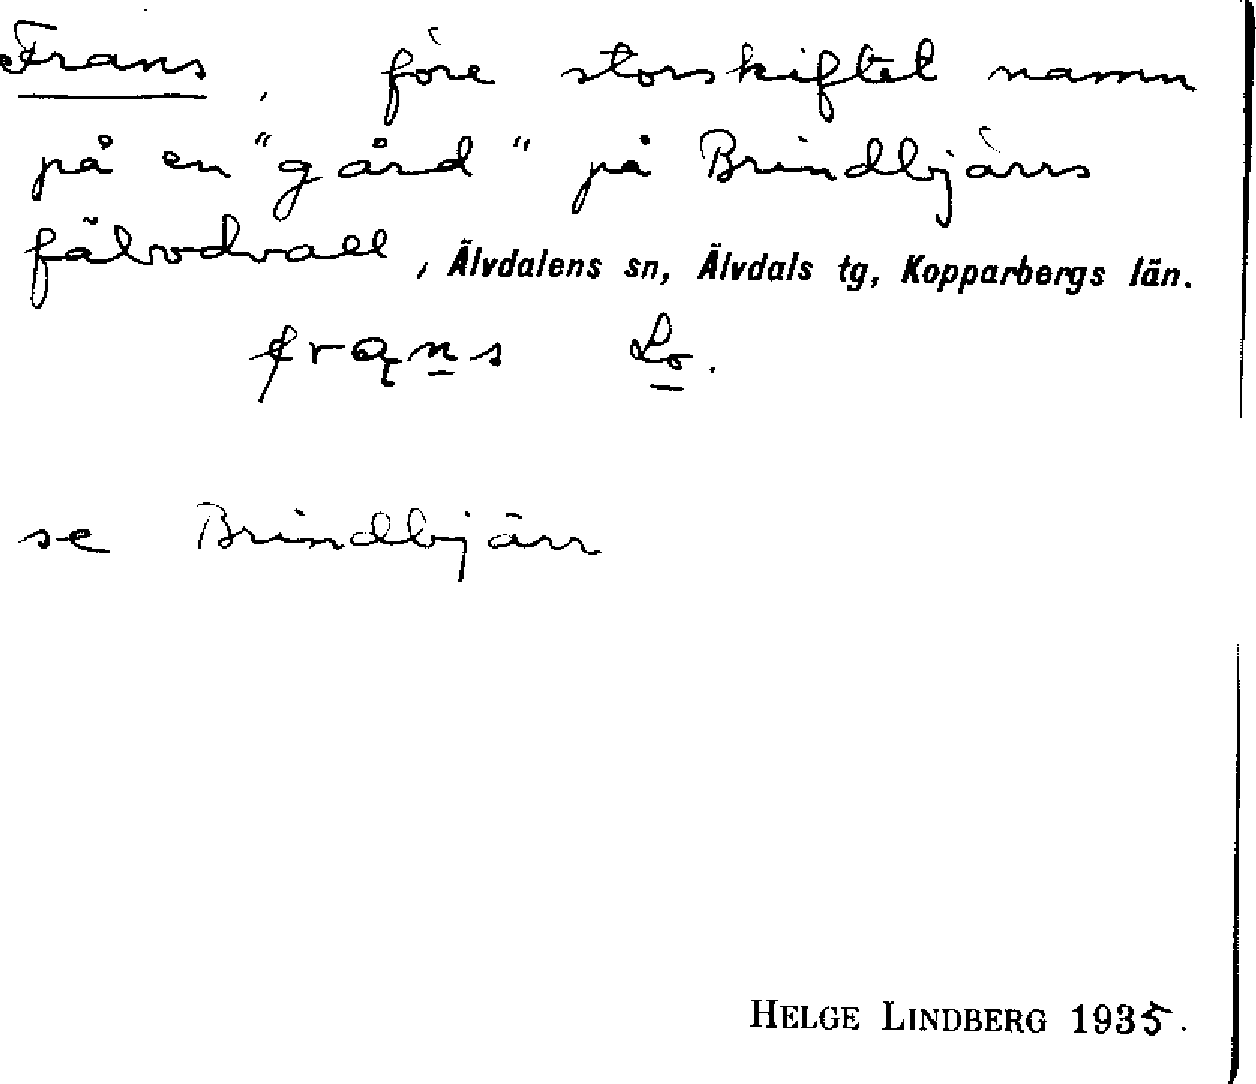 Frans, före storskiftet namn
på en "gård" på Brindbjärrs
fäbodvall, Älvdalens sn, Älvdals tg, Kopparbergs län.
frąns Lo.
se Brindbjärr
HELGE LINDBERG 1935.